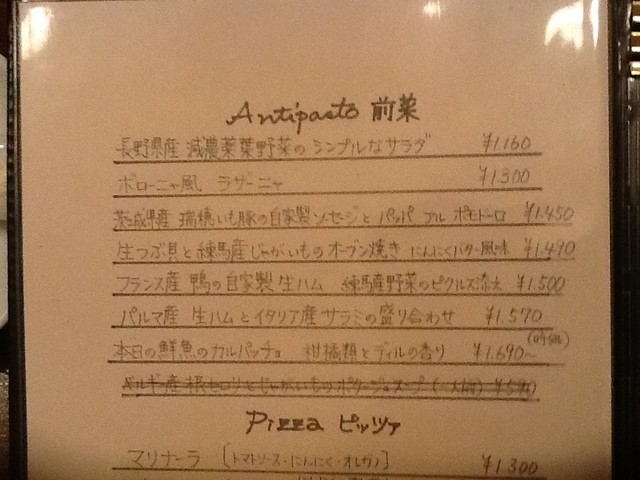 Antipasto 前菜
長野県産 減農薬葉野菜の シンプルなサラダ ¥1.160
ボローニャ風 ラザーニャ ¥1.300
茨城県産 瑞穂いも豚の自家製ソーセージと パッパ アル ポモドーロ ¥1.450
生つぶ貝と練馬産じゃがいものオーブン焼き にんにくバター風味 ¥1.490
フランス産 鴨の自家製生ハム 練馬産野菜のピクルス添え ¥1.500
パルマ産 生ハムとイタリア産サラミの盛り合わせ ¥1.570
本日の鮮魚のカルパッチョ 柑橘類とディルの香り ¥1.690~ (時価)
ベルギー産根セロリとじゃがいものポタージュスープ
Pizza ピッツァ
マリナーラ [トマトソース・にんにく・オレガノ] ¥1.300